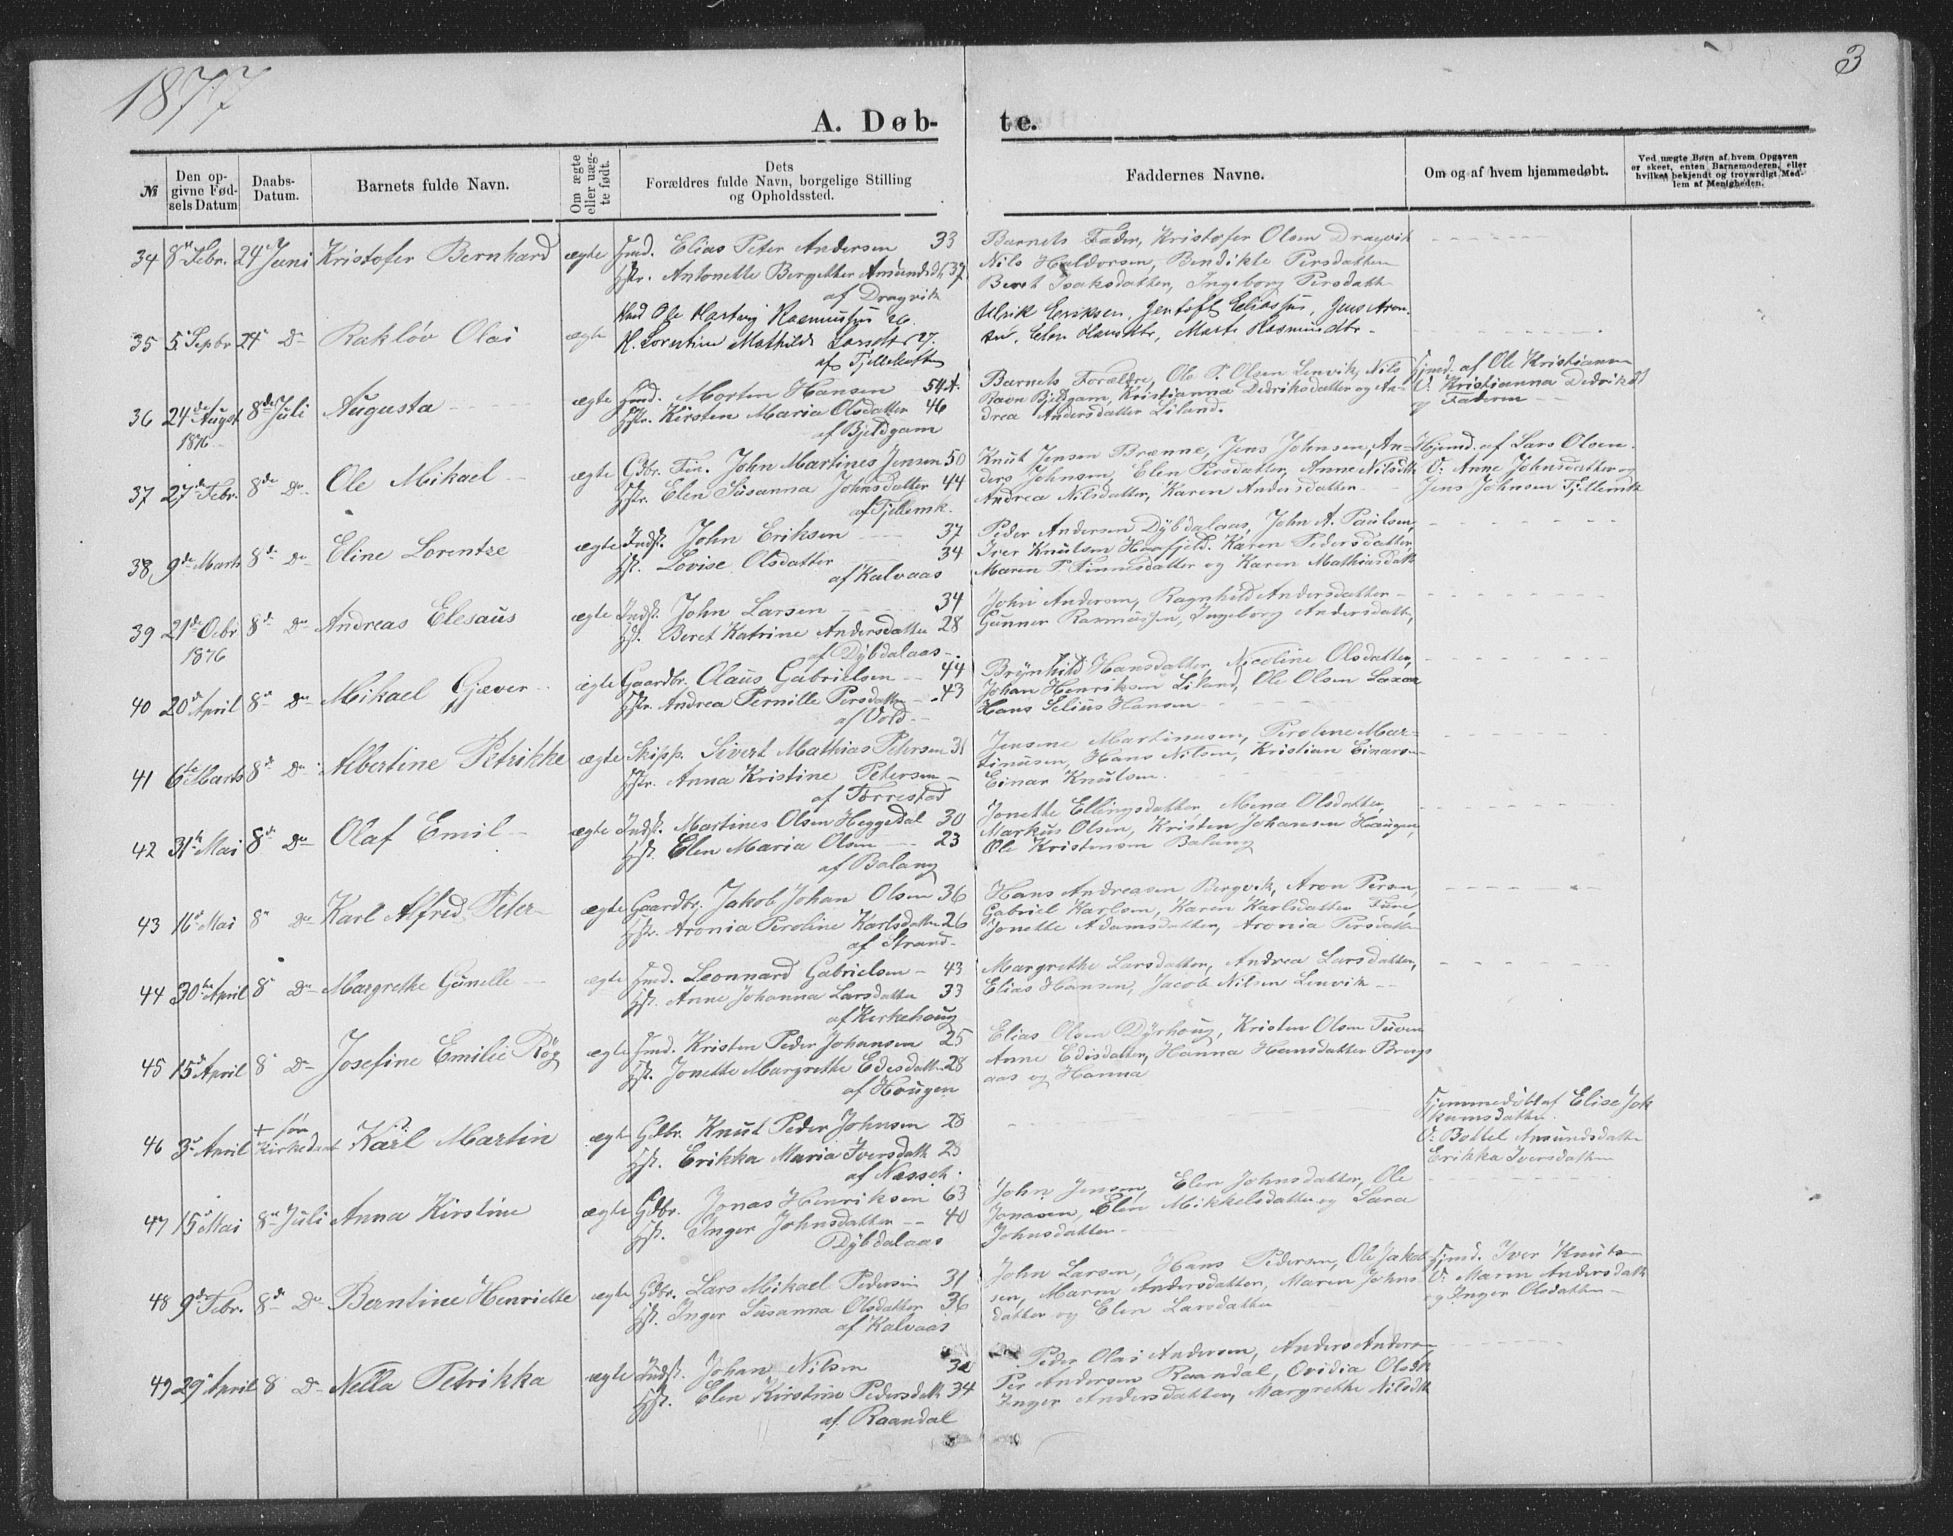 1877
3
A. Døb- te.
№
Den op-
givne Fød-
sels Datum
Daabs-
Datum.
Barnets fulde Navn.
Om ægte
eller uæg-
te født.
Dets
Forældres fulde Navn, borgelige Stilling
og Opholdssted.
Faddernes Navne.
Om og af hvem hjemmedøbt.
Ved uægte Børn af hvem Opgaven
er skeet, enten Barnemoderen, eller
hvilket bekjendt og troværdigt Med-
lem af Menigheden.
34 8de Febr. 24de Juni Kristofer Bernhard ægte Elias Peter Andersen 33
Antonette Bergette Amundsdtr 37
af Dragvik
Barnets Fader, Kristofer Olsen Dragvik
Nils Haldorsen, Bendikte Persdatter
Beret Isaksdatter, Ingeborg Persdatter
35 5 Sepbr 24 Do Rakløv Olai ægte Ole Hartvig Rasmussen 26
Lorentine Mathilde Larsdtr 27.
af
Ulrik Eriksen, Jentoft Eliassen, Jens Aron-
sen, Elen Hansdtr, Marte Rasmusdtr.
36 24de August 8de Juli Augusta ægte Morten Hansen 54
1876
Kirsten Maria Olsdatter 46
af Bjeldgam
Barnets Forældre, Ole P. Olsen Lenvik, Nils
Ravn Bjeldgam, Kristianna Didriksdatter og An-
drea Andersdatter Liland.
Hjmd. af Ole Kristiansen
V. Kristianna Didriksdt
og Faderen
37 27de Febr. 8de Do Ole Mikael ægte Gdbr. Fin. John Martines Jensen 50
Hstr. Elen Susanna Johnsdatter 44
af Fjellemk.
Knut Jensen Brænne, Jens Johnsen, An-
ders Johnsen, Elen Persdatter, Anne Nilsdtr
Andrea Nilsdatter, Karen Andersdatter
Hjemd. af Lars Olsen.
V. Anne Johnsdatter og
Jens Johnsen Fjellemk
38 9de Marts 8de Do Eline Lorentze ægte Indst. John Eriksen 37
Hst. Lovise Olsdatter 34
af Kalvaas
Peder Andersen Dybdalaas, John A. Paulsen,
Iver Knutsen Haafjeld. Karen Pedersdatter,
Maren P. Finnesdatter og Karen Mathiasdatt
39 21de Ocbr 8de Do Andreas Elesaus ægte Indst. John Larsen 34
1876
Hst. Beret Katrine Andersdatter 28
af Dybdalaas
John Andersen, Ragnhild Andersdatter
Gunner Rasmussen, Ingeborg Andersdatt,
40 20de April 8de Do Mikael Gjæver ægte Gaardbr. Olaus Gabrielsen 44
Hstr. Andrea Pernille Persdatter 43
af
Brynhild Hansdatter, Nicoline Olsdatter,
Johan Henriksen Liland, Ole Olsen
Hans Selius Hansen
41 6te Marts 8de Do Albertine Petrikke ægte Skipp. Sivert Mathias Petersen 31
Hstr. Anna Kristine Petersen
af Torrestad
Jensine Martinusen, Peroline Mar-
tinusen, Hans Nilsen, Kristian Einarsen
Einar Knutsen.
42 31te Mai 8de Do Olaf Emil ægte Indst. Martines Olsen Heggedal 30
Hst. Elen Maria Olsen 23
af Balang
Jonette Ellingsdatter, Mena Olsdatter,
Markus Olsen, Kristen Johansen Haugen,
Ole Kristensen Balang
43 16de Mai 8de Do Karl Alfred Peter ægte Gaardbr. Jakob Johan Olsen 36
Hstr. Aronia Peroline Karlsdatter 26
af Strand
Hans Andreasen Bergvik, Aron Persen,
Gabriel Karlsen, Karen Karlsdatter
Jonette Adamsdatter, Aronia Persdatter
44 30te April 8de Do Margrethe Gunelle ægte Leonnard Gabrielsen 43
Hst. Anne Johanna Larsdatter 33
af Kirkehoug
Margrethe Larsdatter, Andrea Larsdatter,
Elias Hansen, Jacob Nilsen Lenvik
45 15de April 8de Do Josefine Emilie Røg ægte Kristen Peder Johansen 25
Hst. Jonette Margrethe Edisdatter 28
af Hougen
Elias Olsen Dyrhoug, Kristen Olsen Tuven
Anne Edisdatter, Hanna Hansdatter Brugs
aas og Hanna
46 3de April + før
Kirkedaab Karl Martin ægte Gdbr. Knut Peder Johnsen 28
Hst. Erikka Maria Iversdatt 23
af
Hjemmedøbt af Elise Jok
kumsdatter.
V. Bottel Amundsdatter
Erikka Iversdatter
47 15de Mai 8de Juli Anna Kirstine ægte Gdbr. Jonas Henriksen 63
Hst. Inger Johnsdatter 40
Dybdalaas
John Jensen, Elen Johnsdatter, Ole
Jonasen, Elen Mikkelsdatter og Sara
Johnsdatter
48 9de Febr. 8de Do Berntine Henriette ægte Gdbr. Lars Mikael Pedersen 31
Hst. Inger Susanna Olsdatter 36
af Kalvaas
John Larsen, Hans Pedersen, Ole Jakob-
sen, Maren Andersdatter, Maren Johns
datter og Elen Larsdatter
Hjmd. Iver Knutsen
V. Maren Andersdatt
og Inger Olsdatter
49 29de April 8 Do Nella Petrikka ægte Indst. Johan Nilsen 32
Hst. Elen Kirstine Pedersdatt 34
af Raandal
Peder Olai Andersen, Anders Andersen
Per Andersen Raandal, Ovidia Olsdt
Inger Andersdatter, Margrethe Nilsdtr